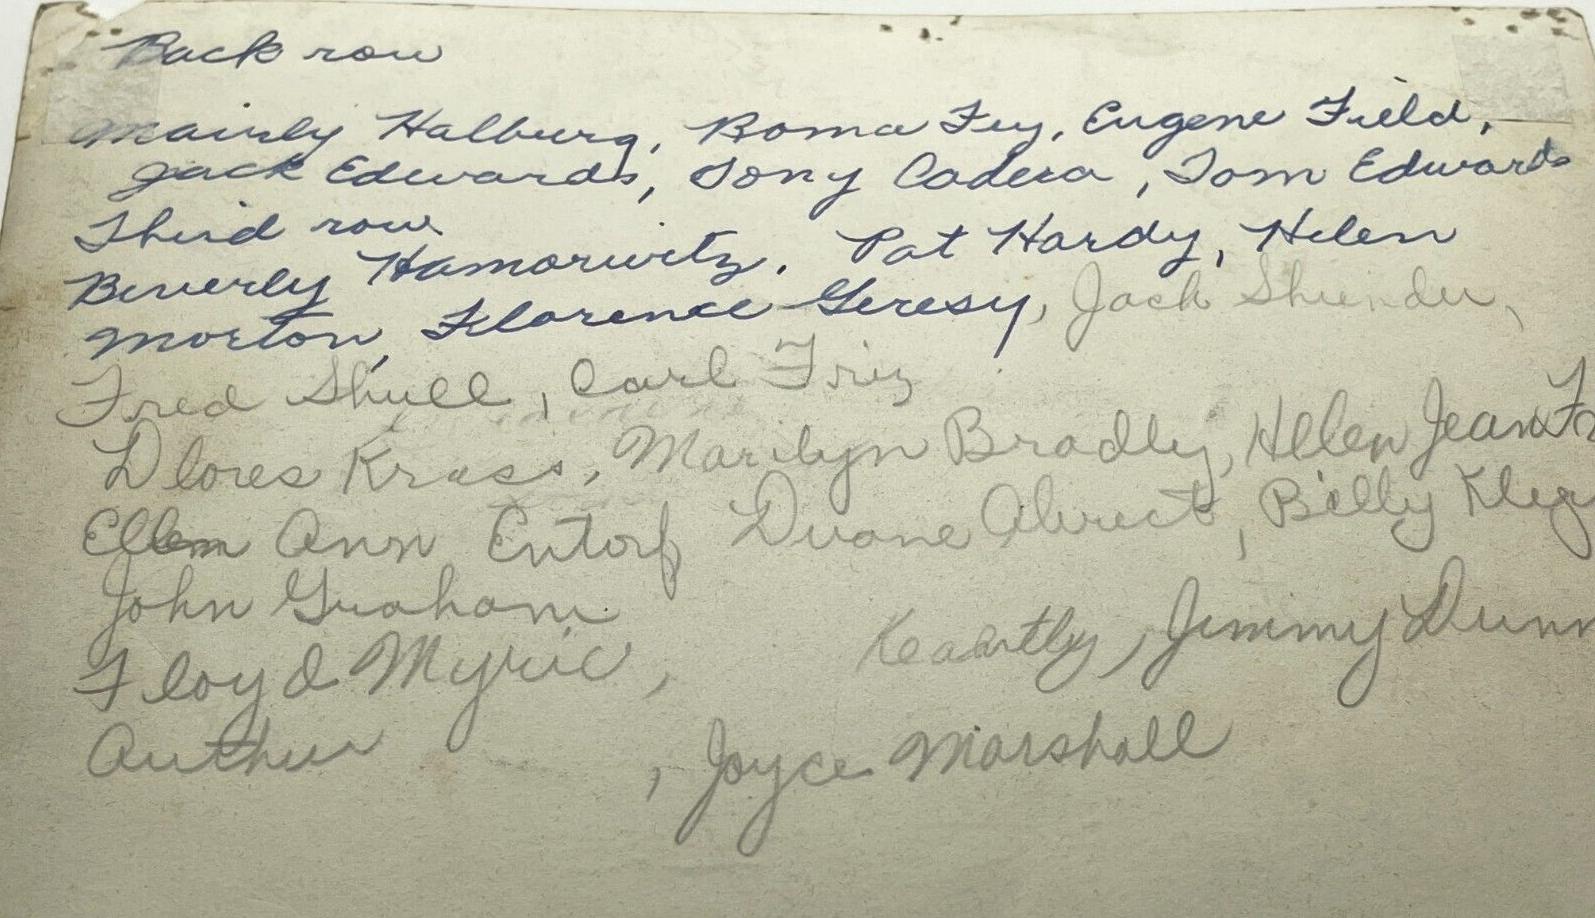 Back row
Mairly Halburg, Roma Fey, Eugene Field,
Jack Edwards, Tony Cadera, Tom Edwards
Third row
Beverly Hamorwitz, Pat Hardy, Helen
Morton, Florence Geresy, Jack Shunder,
Fred Shull, Carl Friz
Dlores Krass, Marilyn Bradly, Hellen Jean
Ellen Ann Entorf Duane Abrect, Billy
John Graham
Floyd Myric, Keantly, Jimmy Dunn
Arthur , Joyce Marshall